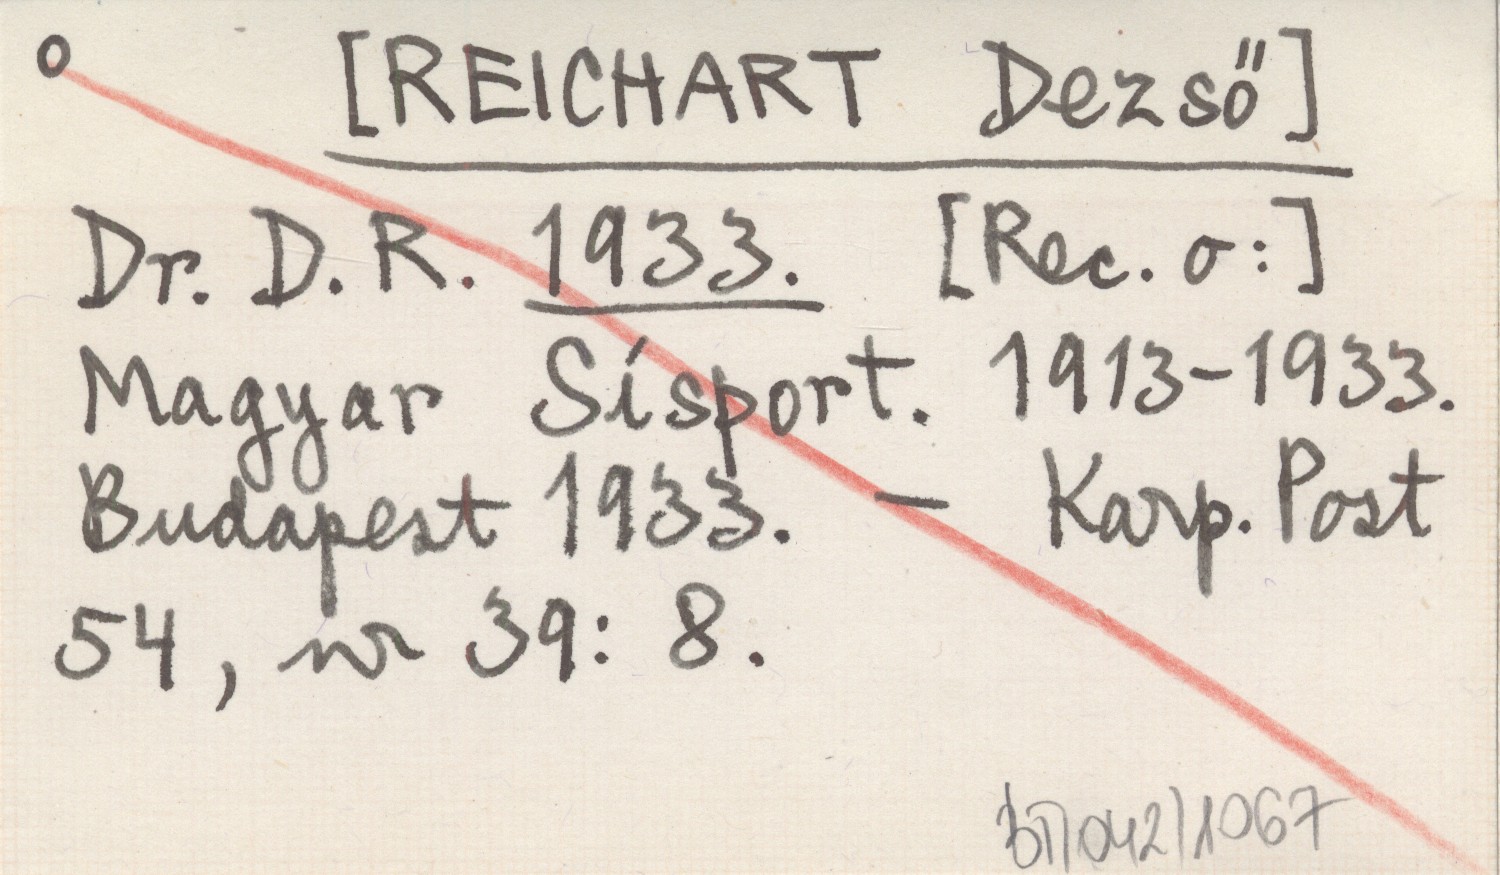 o [REICHART Dezső]
Dr. D. R. 1933. [Rec. o:]
Magyar Sísport. 1913-1933.
Budapest 1933. — Karp. Post
54, nr 39: 8.
042/1067